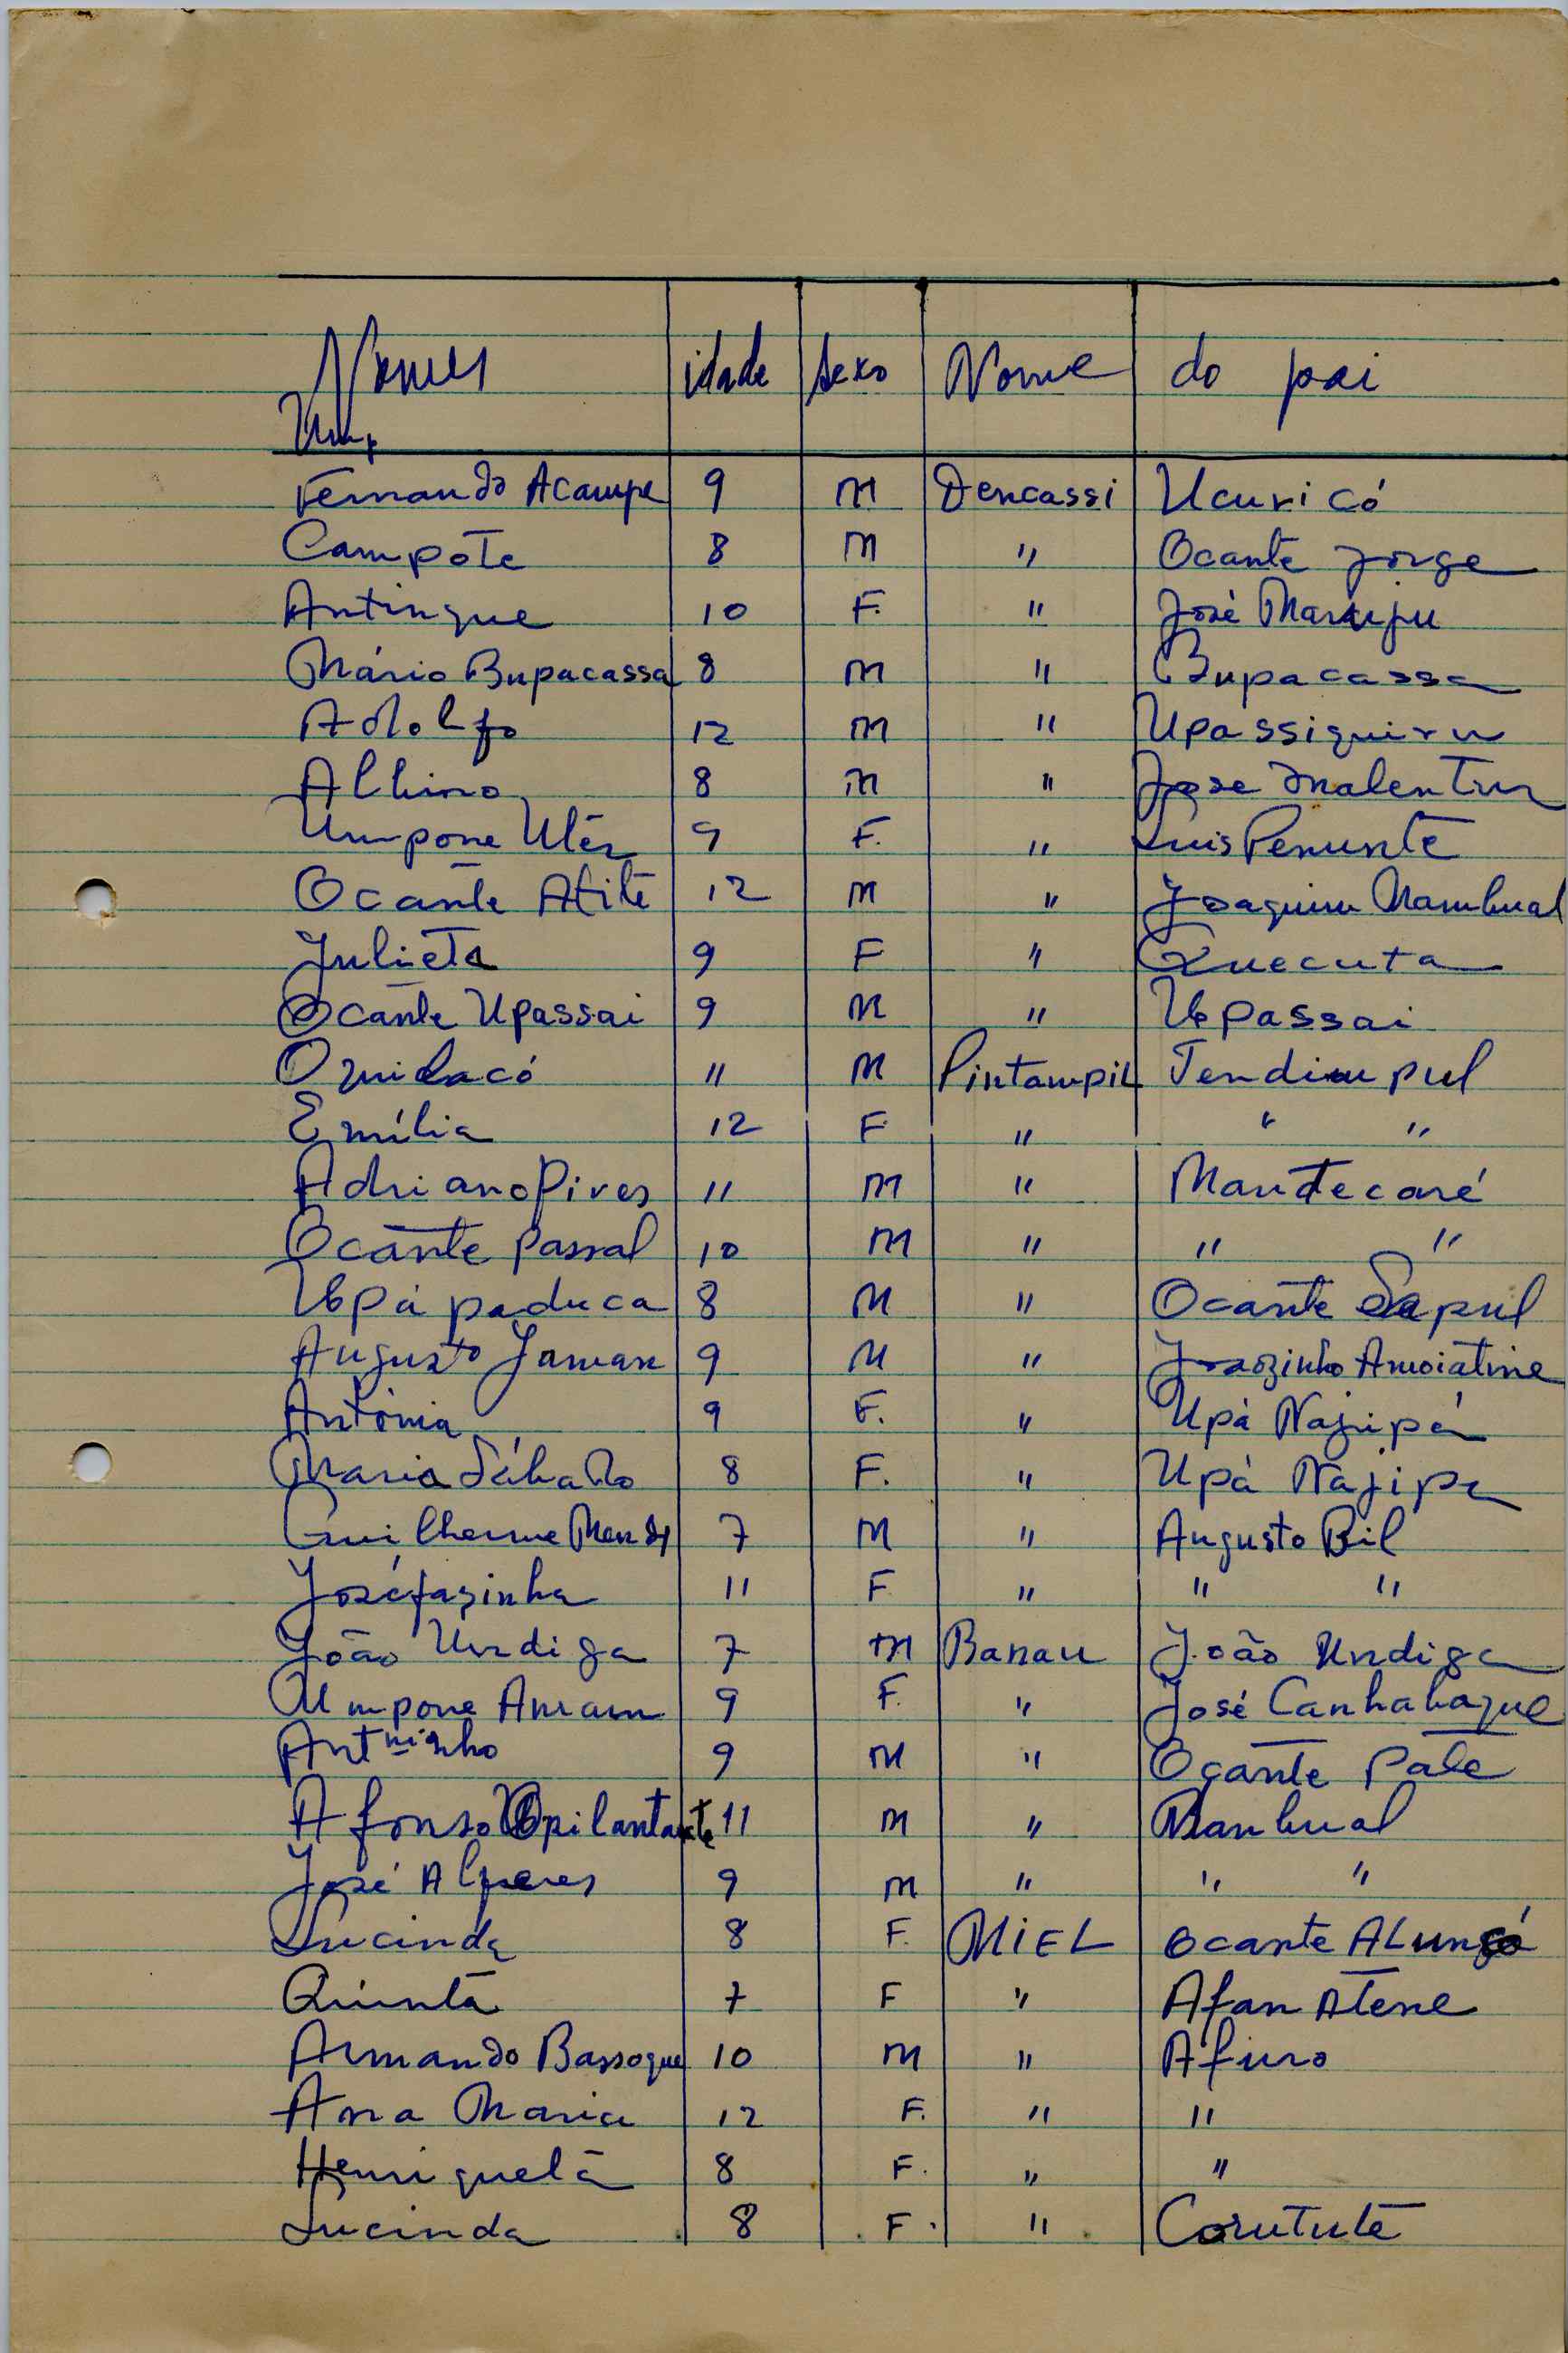 Nomes idade sexo Nome do pai
Fernando Acampe 9 M Dencassi Ucuricó
Campote 8 M " Ocante Jorge
Antingue 10 F. " José
Mário Bupacassa 8 M " Bupacassa
Adolfo 12 M " Upassiquiru
Albino 8 M " Jose
Umpone 9 F. " Luis Penunte
Ocante Atite 12 M " Joaquim Nambual
Julieta 9 F " Quecuta
Ocante Upassai 9 M " Upassai
11 M Pintampil Tendimpul
Emília 12 F " " "
Adriano Pires 11 M " Mantecaré
Ocante Passal 10 M " " "
Upá paduca 8 M " Ocante Sapul
Augusto 9 M " Joaozinho Amoiatine
Antónia 9 F. " Upá Najipá
Maria Sábado 8 F. " Upá Najipe
Guilherme Mendy 7 M " Augusto Bil
Joséfazinha 11 F " " "
João Undiga 7 M Banau João Undiga
Umpone 9 F. " José Canhabaque
Antninho 9 M " Ocante Pate
Afonso 11 M " Nanbual
José Alferes 9 M " " "
Lucinda 8 F. MIEL Ocante
Quinta 7 F " Afan Atene
Armando Bassoque 10 M " Afuro
Ana Maria 12 F. " "
Henriqueta 8 F. " "
Lucinda 8 F. " Corutute